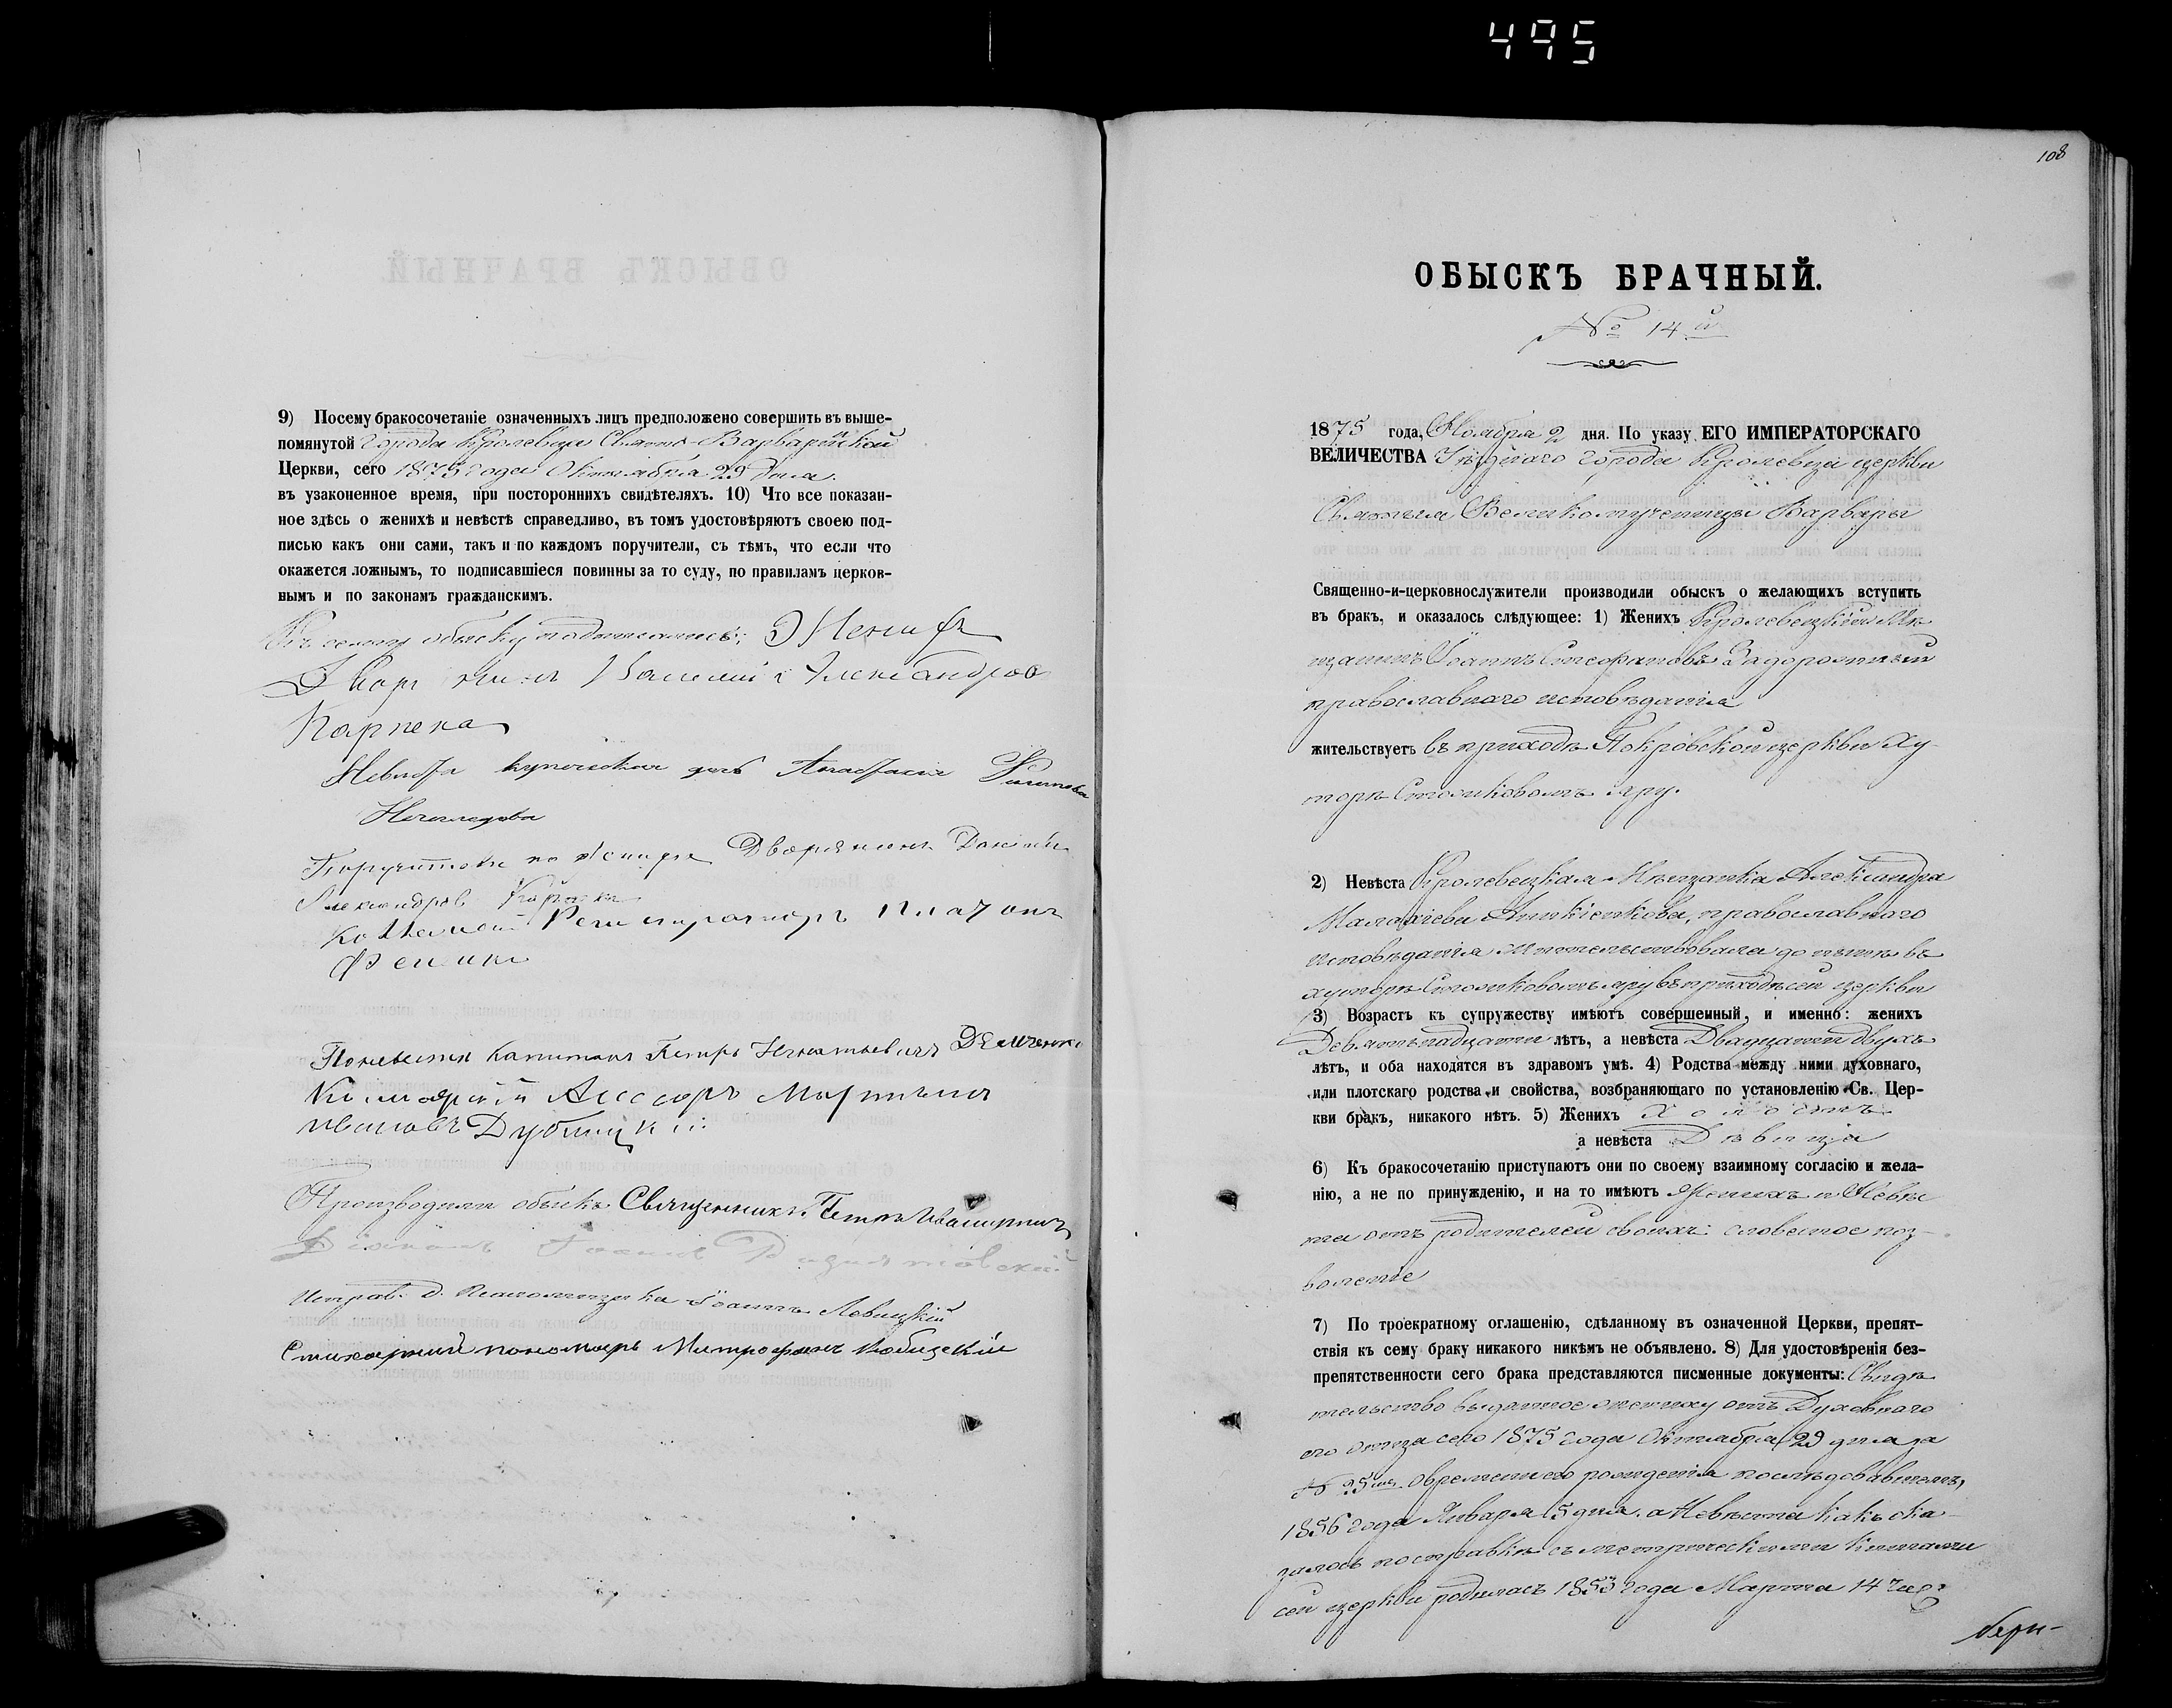 495
9) Посему бракосочетаніе означенныхъ лицъ предположено совершить въ выше-
помянутой Города Кролевца Свято-Варваринской
Церкви, сего 1875 года Октября 29 дня.
въ узаконенное время, при постороннихъ свидѣтеляхъ. 10) Что все показан-
ное здѣсь о женихѣ и невѣстѣ справедливо, въ томъ удостовѣряютъ своею под-
писью какъ они сами, такъ и по каждомъ поручители, съ тѣмъ, что если что
окажется ложнымъ, то подписавшіеся повинны за то суду, по правиламъ церков-
нымъ и по законамъ гражданскимъ.
Къ сему обыску подписались: Женихъ
Дворянинъ Василій Александровъ
Карпека
Невѣста купеческая дочь Анастасія

Поручители по женихѣ Дворянинъ
Александровъ Карпека
Коллежскій Регистраторъ Платонъ

Капитанъ Петръ Игнатьевичъ
Ассесоръ Мартынъ
Ивановъ Дубницкій
Производили обыскъ Священникъ Петръ
Діаконъ Іоаннъ
Исправ. д. Псаломщика Іоаннъ Левицкій
Стихарный пономарь Митрофанъ
108
ОБЫСКЪ БРАЧНЫЙ.
№ 14й
1875 года, Ноября 2 дня. По указу ЕГО ИМПЕРАТОРСКАГО
ВЕЛИЧЕСТВА Уѣзднаго города Кролевца церкви
Святыя Великомученицы Варвары
Священно-и-церковнослужители производили обыскъ о желающихъ вступить
въ бракъ, и оказалось слѣдующее: 1) Женихъ Кролевецкій Мѣ-
щанинъ Іоаннъ Стефановъ Задорожный
православнаго исповѣданія
жительствуетъ въ приходѣ Покровской церкви Ху-
торѣ Яру.
2) Невѣста Кролевецкая Мѣщанка Александра
Малахіева православнаго
исповѣданія жительствовала до нынѣ въ
хуторѣ Яру въ приходѣ сей церкви
3) Возрастъ къ супружеству имѣютъ совершенный, и именно: женихъ
Девятнадцати лѣтъ, а невѣста Двадцати двухъ
лѣтъ, и оба находятся въ здравомъ умѣ. 4) Родства между ними духовнаго,
или плотскаго родства и свойства, возбраняющаго по установленію Св. Цер-
кви бракъ, никакого нѣтъ. 5) Женихъ Холостъ
а невѣста Дѣвица
6) Къ бракосочетанію приступаютъ они по своему взаимному согласію и жела-
нію, а не по принужденію, и на то имѣютъ Женихъ и Невѣс
та отъ родителей своихъ словесное поз-
воленіе
7) По троекратному оглашенію, сдѣланному въ означенной Церкви, препят-
ствія къ сему браку никакого никѣмъ не объявлено. 8) Для удостовѣренія без-
препятственности сего брака представляются писменные документы: Свидѣ
тельство выданное жениху отъ Духовнаго
его отца сего 1875 года Октября 29 дня за
№ 25 о времени его рожденія послѣдовавшемъ,
1856 года Января 5 дня. а Невѣста какъ ока-
залось по справкѣ съ метрическими книгами
сей церкви родилась 1853 года Марта 14 числ